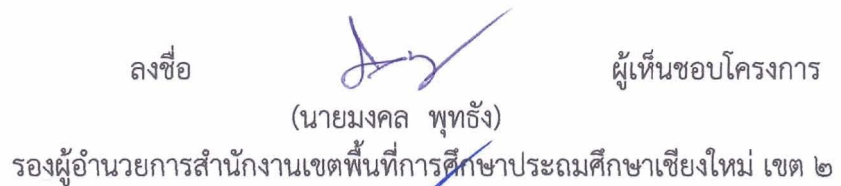 ลงชื่อ ผู้เห็นชอบโครงการ
(นายมงคล พุทธัง)
รองผู้อำนวยการสำนักงานเขตพื้นที่การศึกษาประถมศึกษาเชียงใหม่ เขต ๒